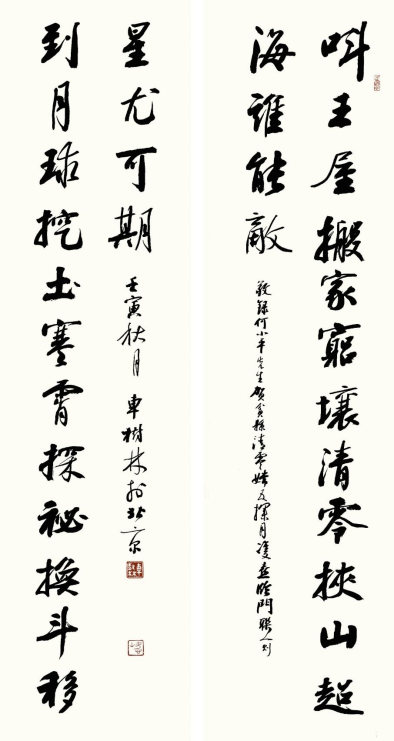 叫王屋搬家窮壤清零挾山超
海誰能敵
敬錄何小平先生賀貧縣清零嫦五探月雙喜臨門聯一則
到月球挖土寒霄探祕換斗移
星尤可期
壬寅秋月 車樹林於北京